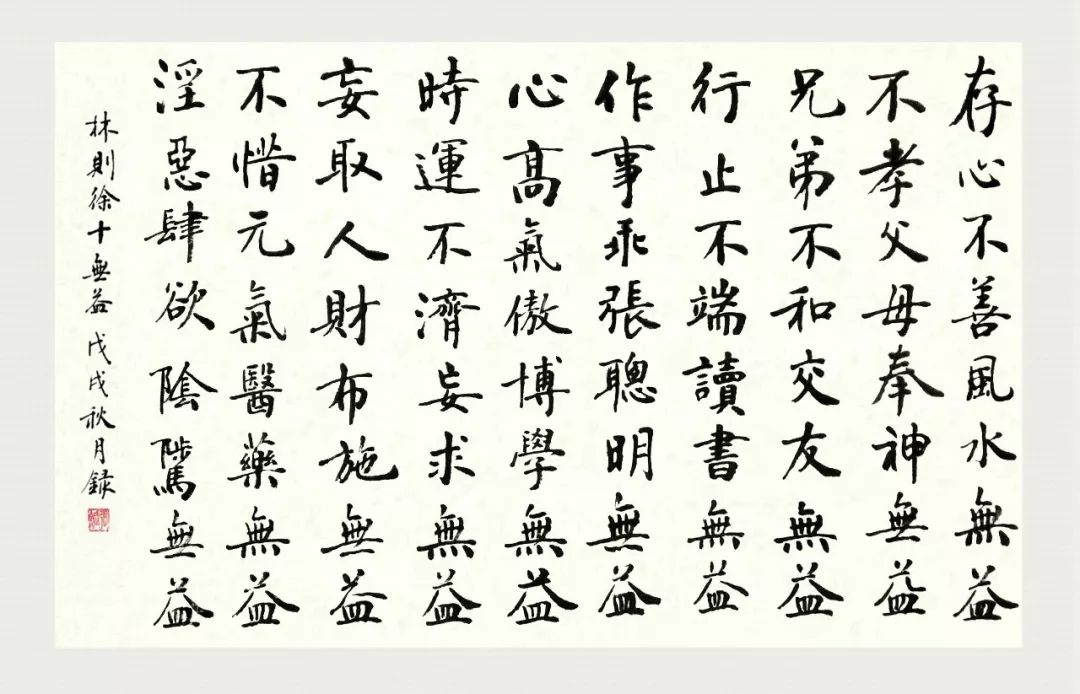 存心不善風水無益
不孝父母奉神無益
兄弟不和交友無益
行止不端讀書無益
作事乖張聰明無益
心高氣傲博學無益
時運不濟妄求無益
妄取人財布施無益
不惜元氣醫藥無益
淫惡肆欲陰騭無益
林則徐十無益 戊戌秋月録